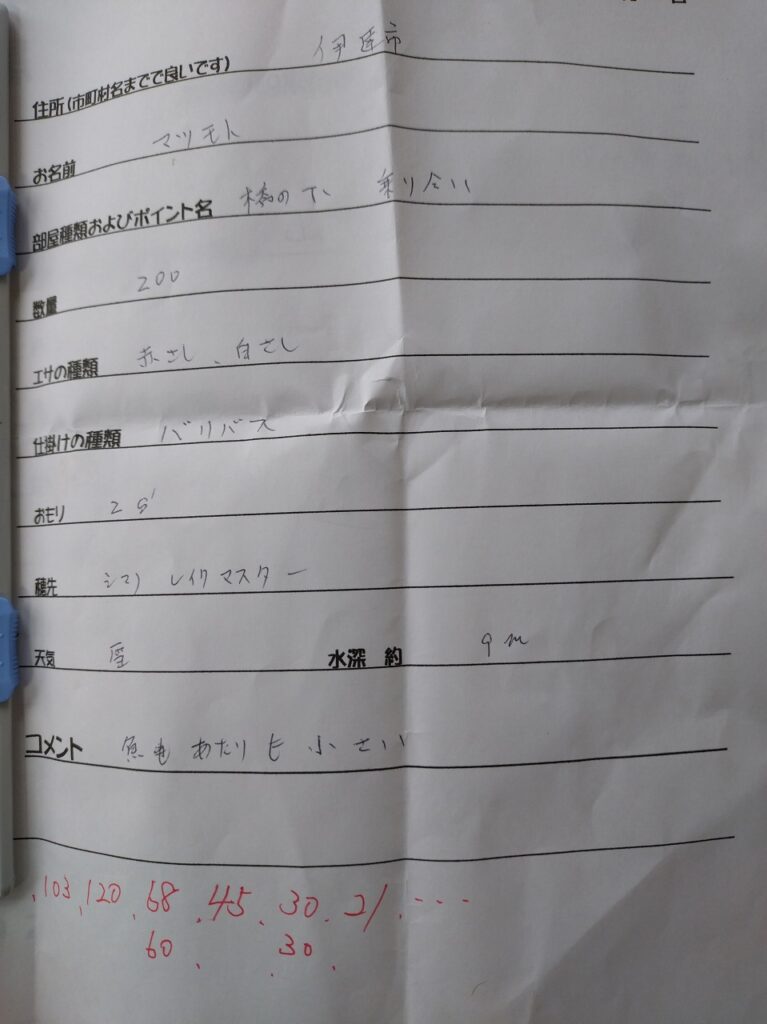 住所(市町村名までで良いです) 伊達市
お名前 マツモト
部屋種類およびポイント名 橋の下 乗り合い
数量 200
エサの種類 赤さし、白さし
仕掛けの種類 バリバス
おもり 2g
穂先 シマノ レイクマスター
天気 水深 約 9m
コメント 魚も あたりも 小さい
.103 .120 .68 .45 .30 .21 ....
60 . 30 .